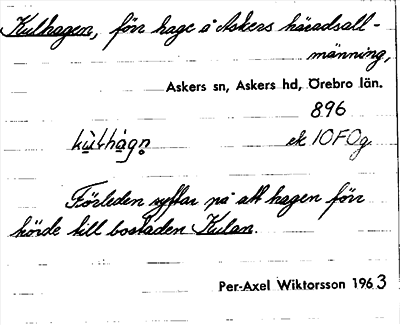 Kulhagen, förr hage å Askers häradsall-
männing,
Askers sn, Askers hd, Örebro län.
896
kùlhàgn̥ ek 10F0g
Förleden syftar på att hagen förr
hörde till bostaden Kulan.
Per-Axel Wiktorsson 1963